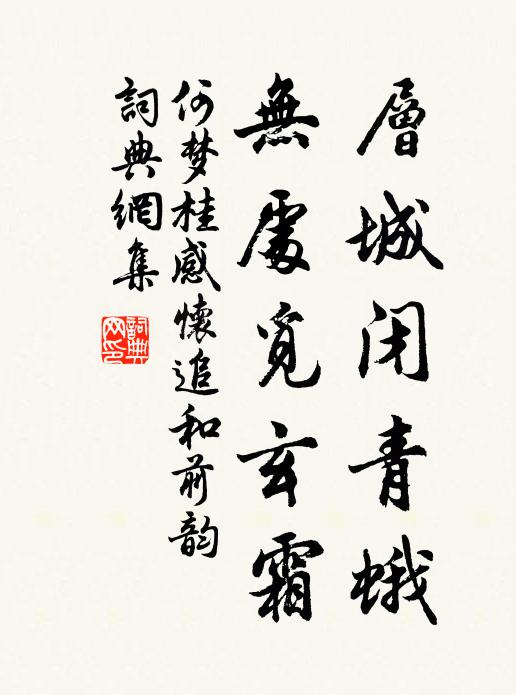 層城闭青蛾
無處覓玄霜
何梦桂感懷追和前韵
詞典網集
詞典网印